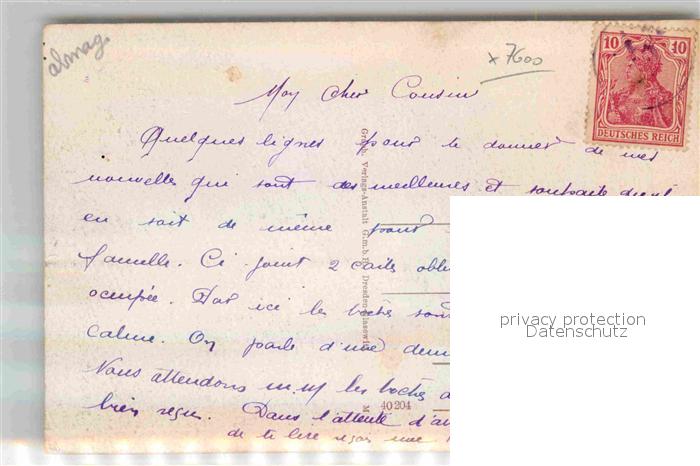 almag.
x 7600
10 10
DEUTSCHES REICH
Mon Cher Cousin
Quelques lignes pour te donner de mes
nouvelles qui sont des meilleures et souhaite
en soit de même pour
famille. Ci joint 2 cartes
occupée. Par ici les boches sont
calme. On parle d'une
Nous attendons les boches
bien reçu. Dans l'attente
de te lire
Graph. Verlags-Anstalt G.m.b.H. Dresden-Blasewitz
M 40204
privacy protection
Datenschutz